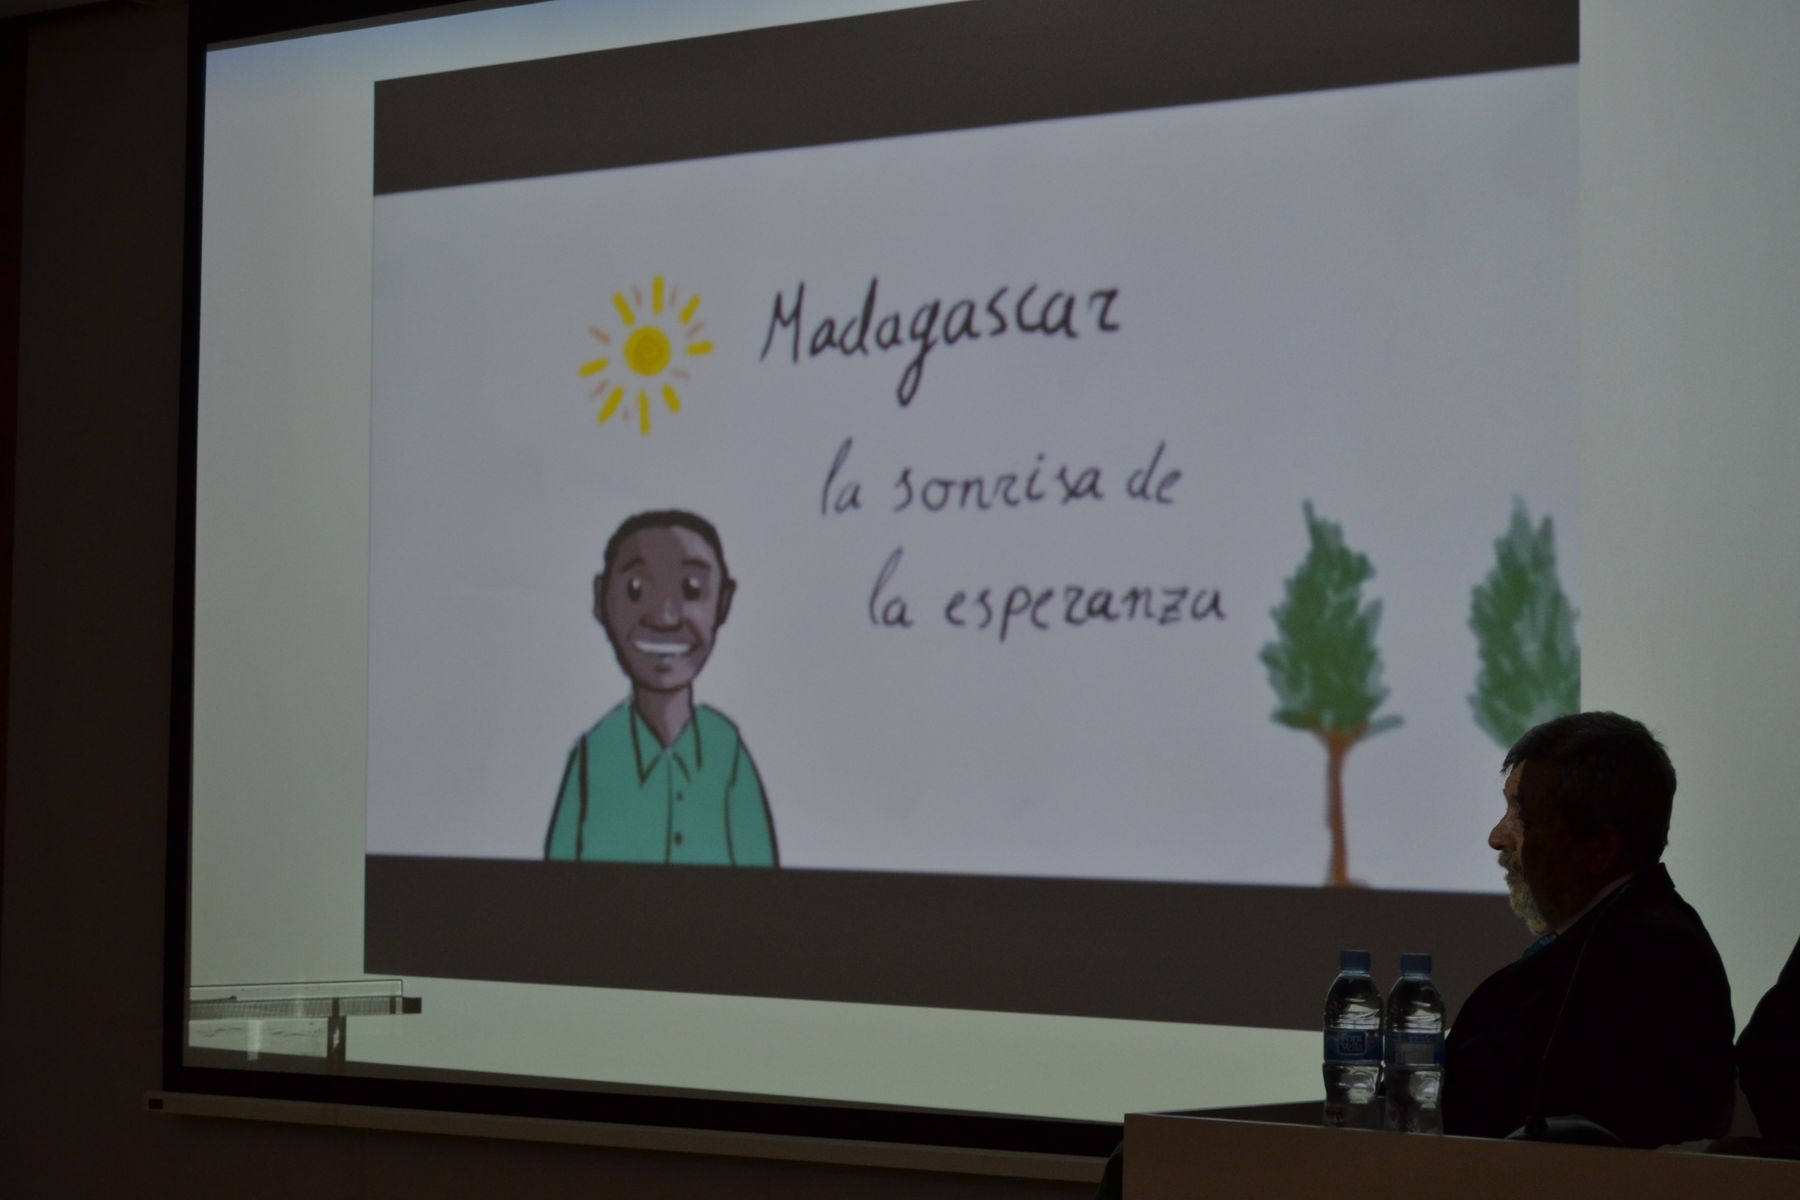 Madagascar
la sonrisa de
la esperanza